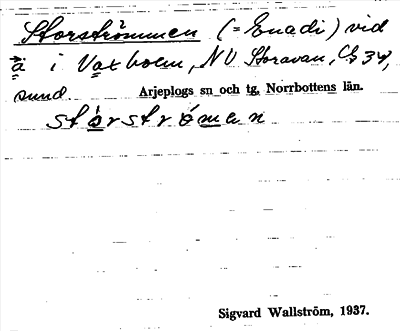 Storströmmen (= Enadi) vid
å i Vaxholm, NV Storavan, Gb 34,
sund Arjeplogs sn och tg, Norrbottens län.
stòrstrómen
Sigvard Wallström, 1937.